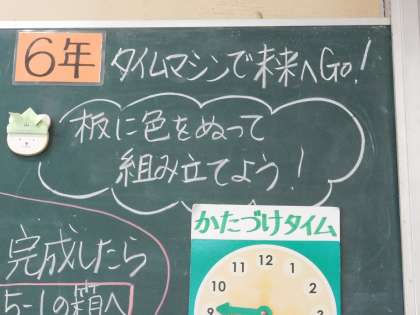 6年 タイムマシンで未来へGo!
板に色をぬって
組み立てよう!
かたづけタイム
完成したら
5-1の箱へ
12
11 1
10 2
9 3
8 4